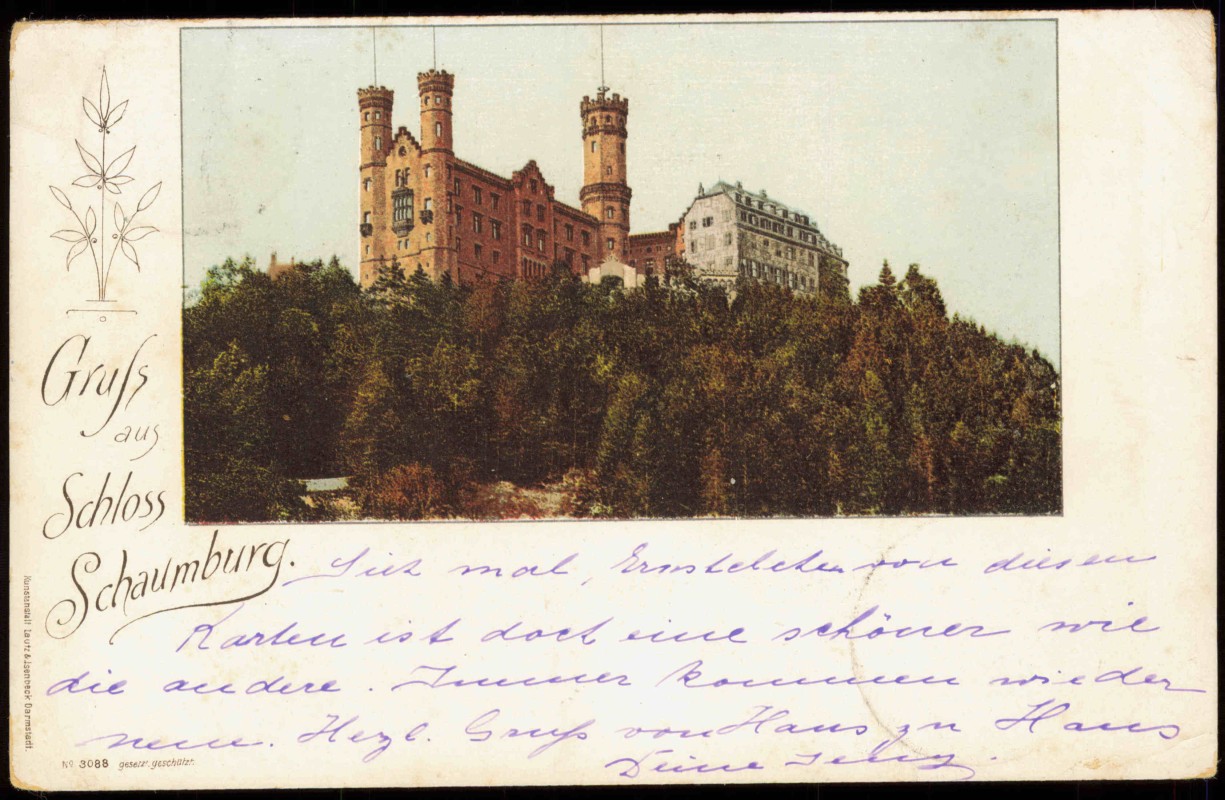 Gruſs
aus
Schloss
Schaumburg.
Sieh mal, Ernstelchen von diesen
Karten ist doch eine schöner wie
die andere. Immer kommen wieder
neue. Hezl. Gruß von Haus zu Haus
Deine
Kunstanstalt Lautz & Isenbeck Darmstadt.
No 3088 gesetzl. geschützt.